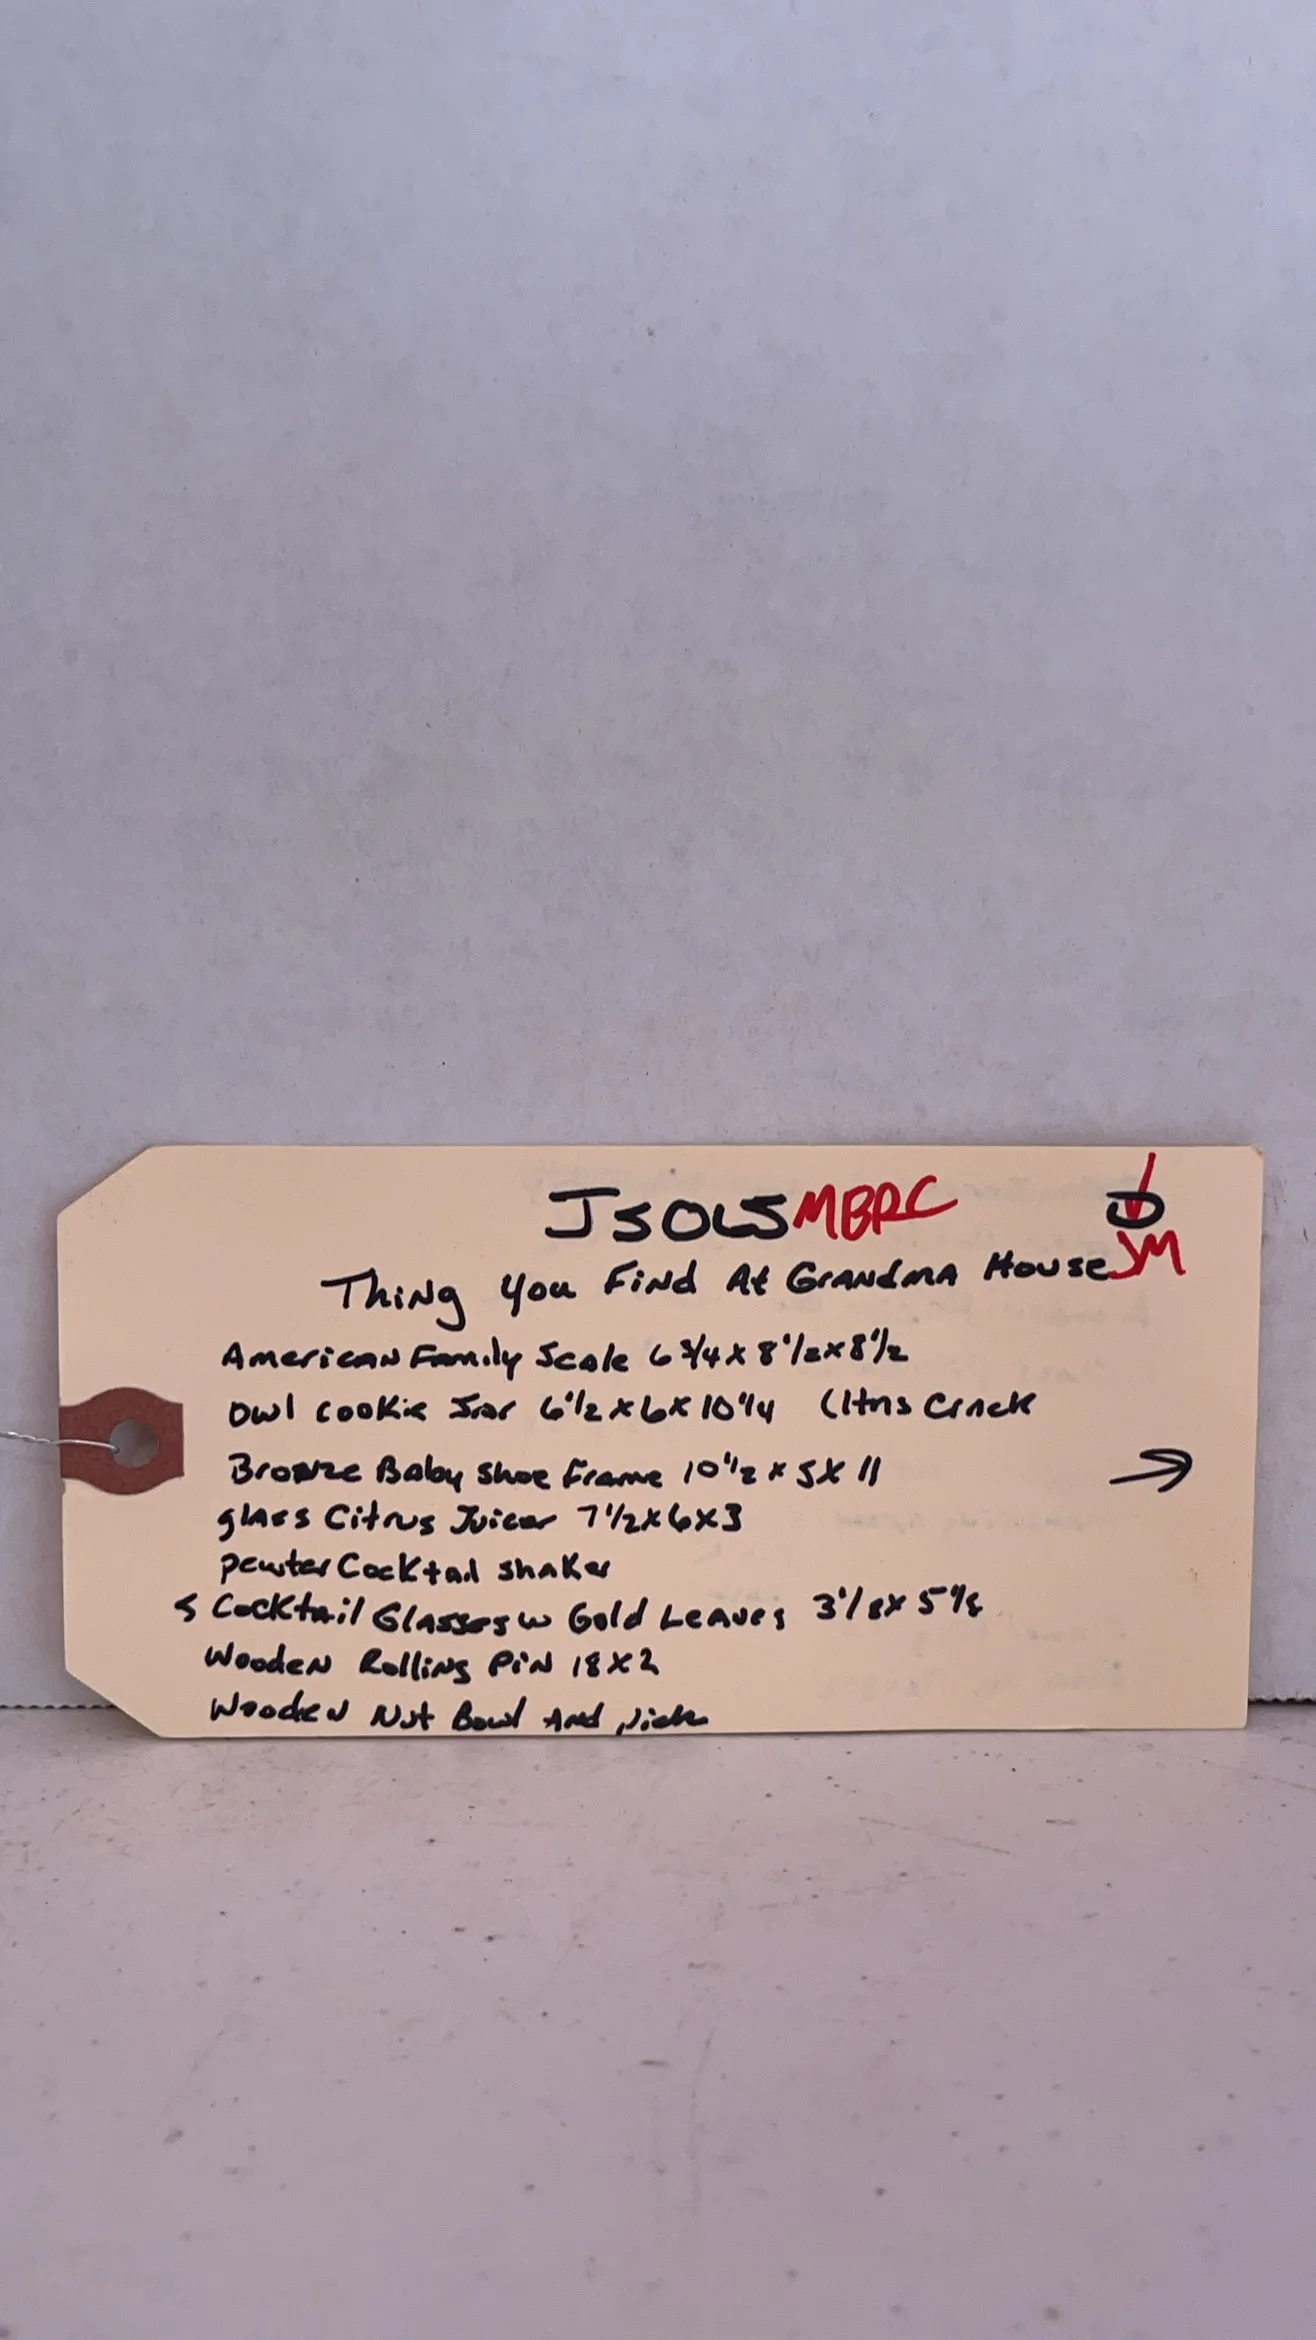 JSOLS MBRC D
JM
Thing You Find At Grandma House
American Family Scale 6 3/4 x 8 1/2 x 8 1/2
Owl Cookie Jar 6 1/2 x 6 x 10 1/4 Crack
Bronze Baby Shoe Frame 10 1/2 x 5 x 11 →
glass Citrus Juicer 7 1/2 x 6 x 3
pewter Cocktail Shaker
5 Cocktail Glasses w Gold Leaves 3 1/8 x 5 1/8
Wooden Rolling Pin 18 x 2
Wooden Nut Bowl And